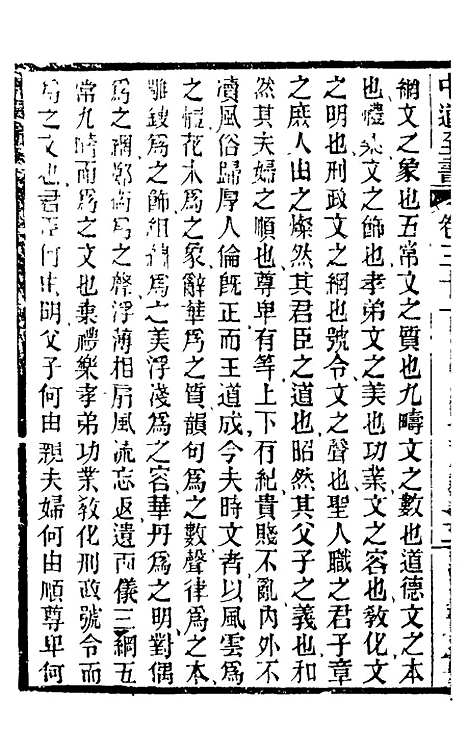 網文之象也五常文之質也九疇文之數也道德文之本
也禮樂文之飾也孝弟文之美也功業文之容也敎化文
之明也刑政文之綱也號令文之聲也聖人職之君子章
之庶人由之燦然其君臣之道也昭然其父子之義也和
然其夫婦之順也尊卑有等上下有紀貴賤不亂內外不
瀆風俗歸厚人倫旣正而王道成今夫時文者以風雲爲
之體花木爲之象辭華爲之質韻句爲之數聲律爲之本
雕鎪爲之飾組繡爲之美浮淺爲之容華丹爲之明對偶
爲之綱鄭衛爲之聲浮薄相扇風流忘返遺兩儀三綱五
常九疇而爲之文也棄禮樂孝弟功業敎化刑政號令而
爲之文也君臣何由明父子何由親夫婦何由順尊卑何